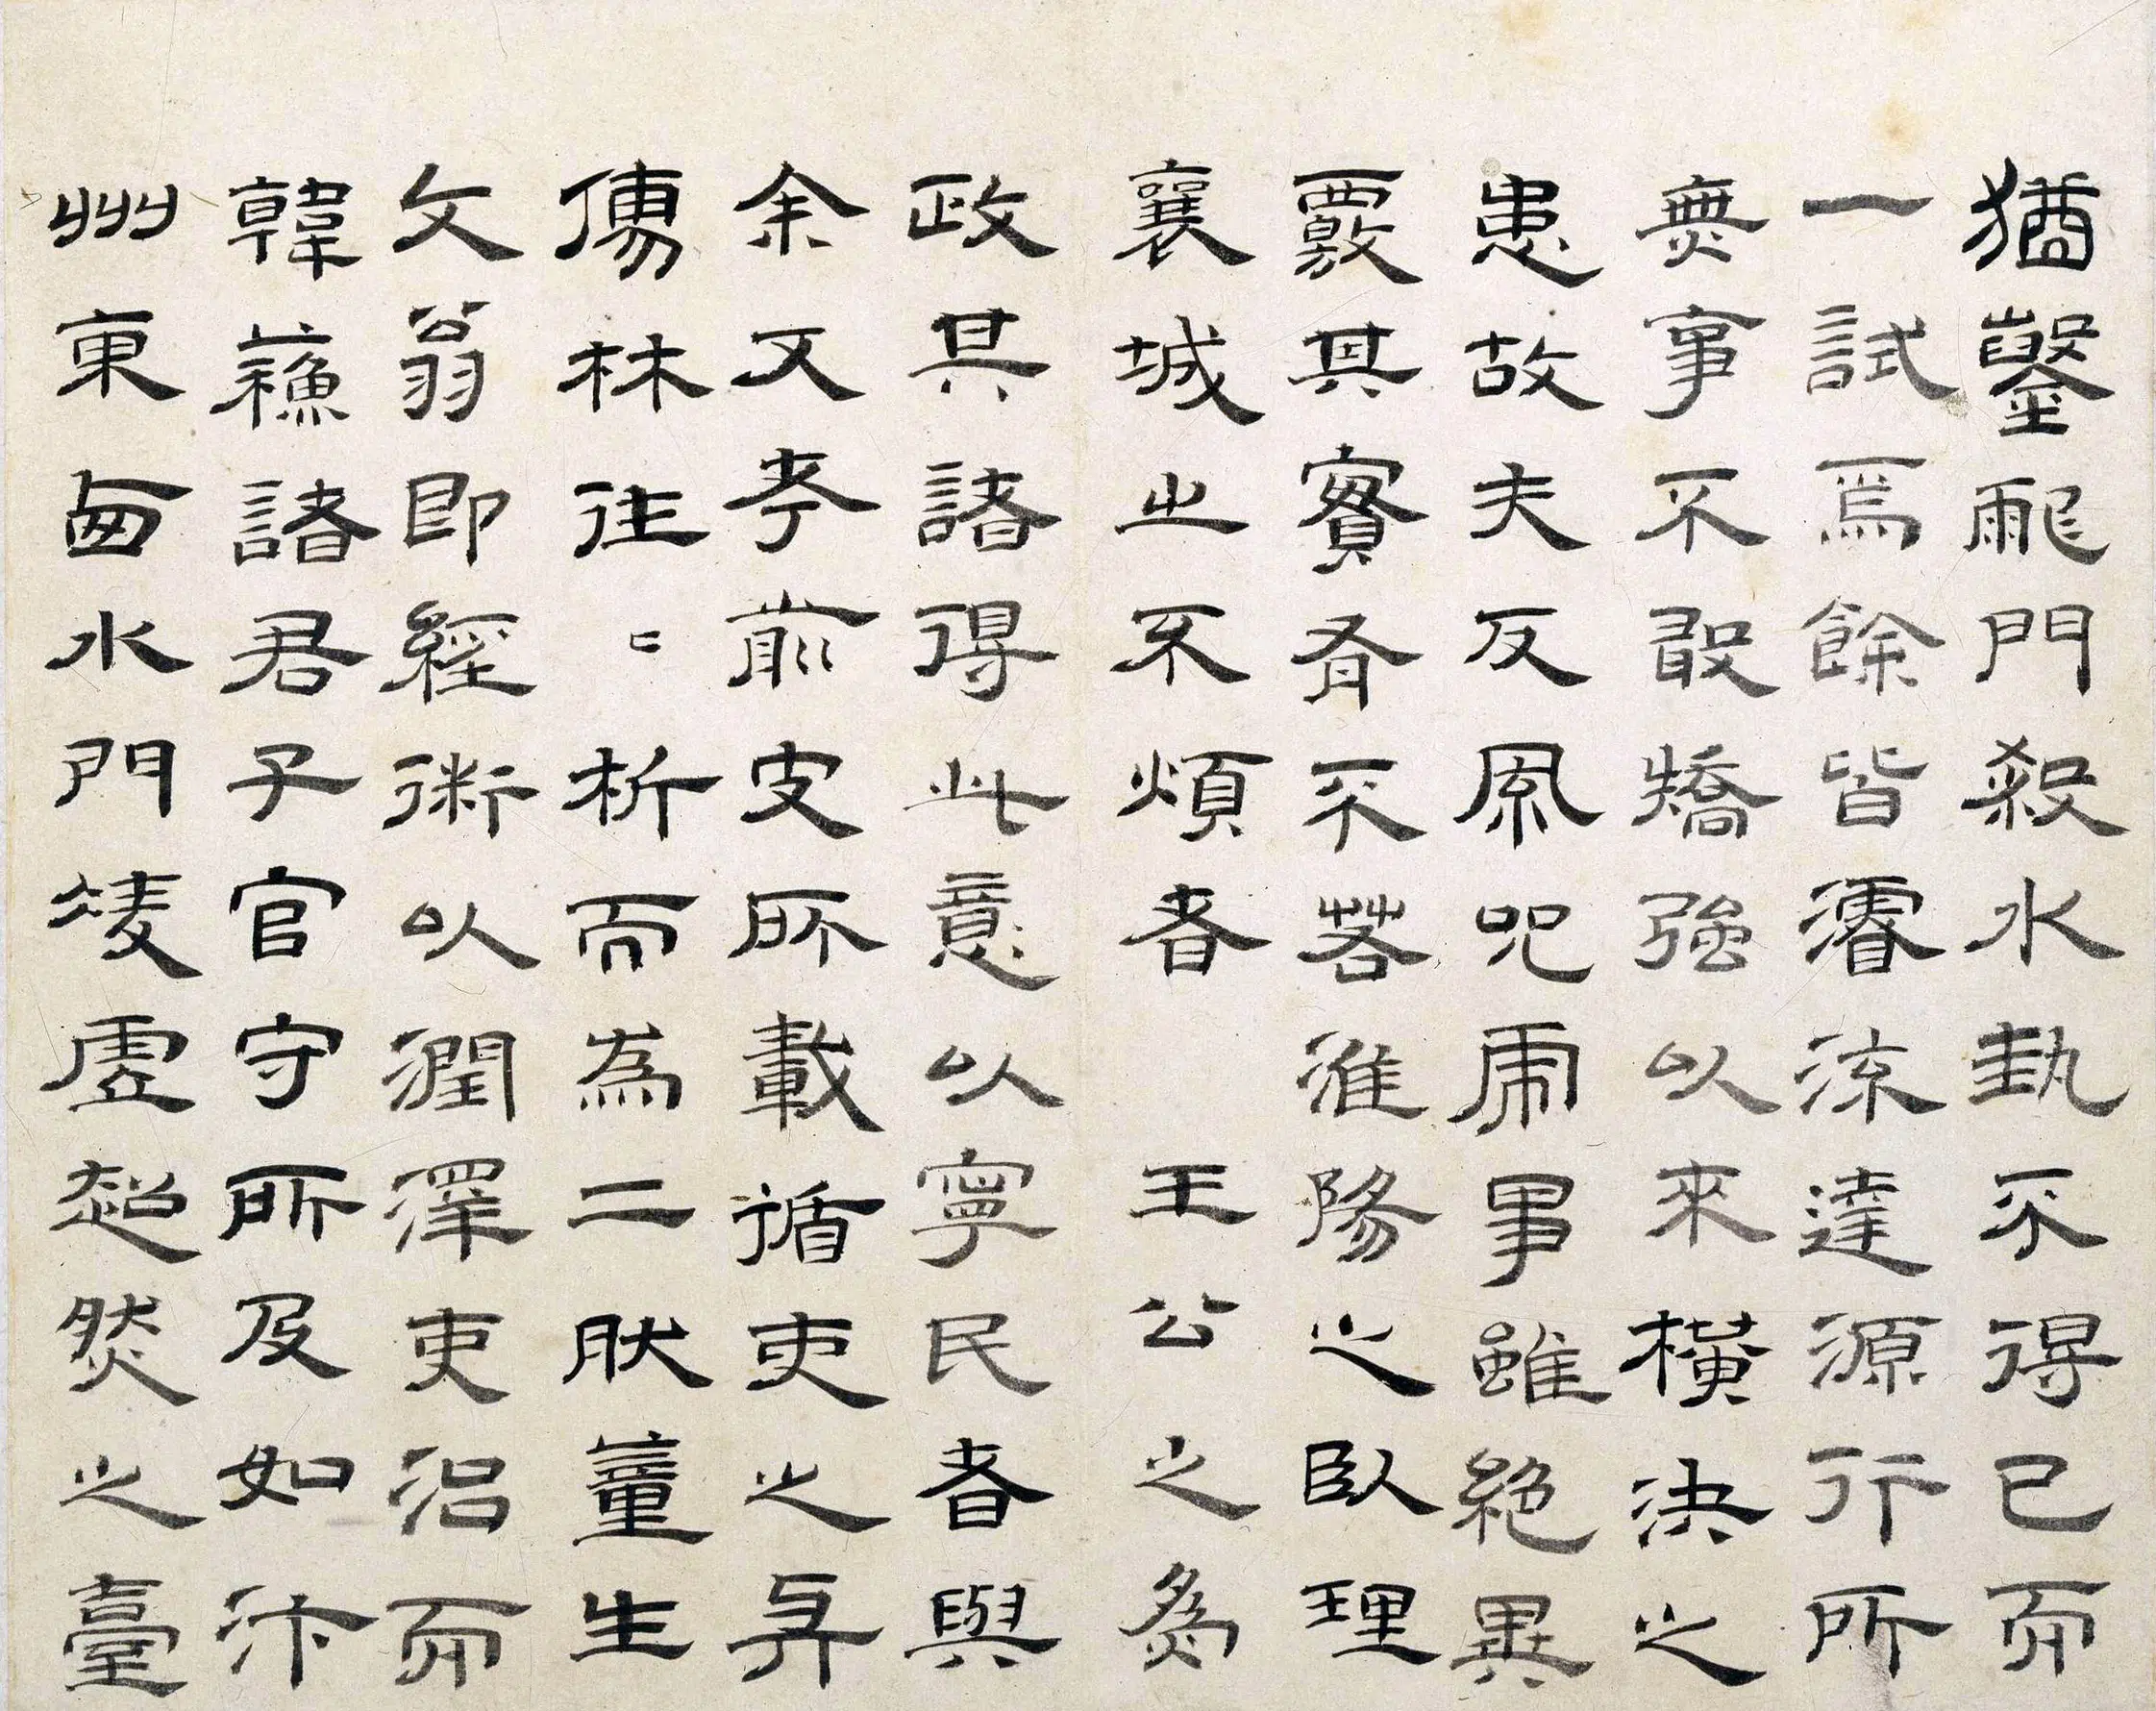 猶鑿龍門殺水埶不得已而
一試焉餘皆濬流達源行所
無事不敢矯強以來橫決之
患故夫反風咒虎事雖絕異
覈其實有不若淮陽之臥理
襄城之不煩者 王公之為
政其諸得此意以寧民者與
余又考前史所載循吏之與
儒林往〻析而為二然董生
文翁即經術以潤澤吏治而
韓蘇諸君子官守所及如汴
州東西水門凌虛超然之臺